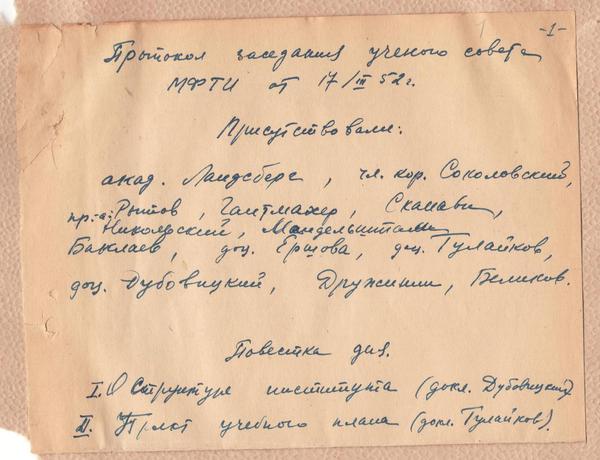 -1-
Протокол заседания ученого совета
МФТИ от 17/III 52г.
Присутствовали:
акад. Ландсберг, чл. кор. Соколовский,
пр-а: Рытов, Гантмахер, Сканави,
Никольский, Мандельштам
Баклаев, доц. Ершова, доц. Тулайков,
доц. Дубовицкий, Дружинин, Беликов.
Повестка дня.
I. О Структуре института (докл. Дубовицкий)
II. Проект учебного плана (докл. Тулайков).